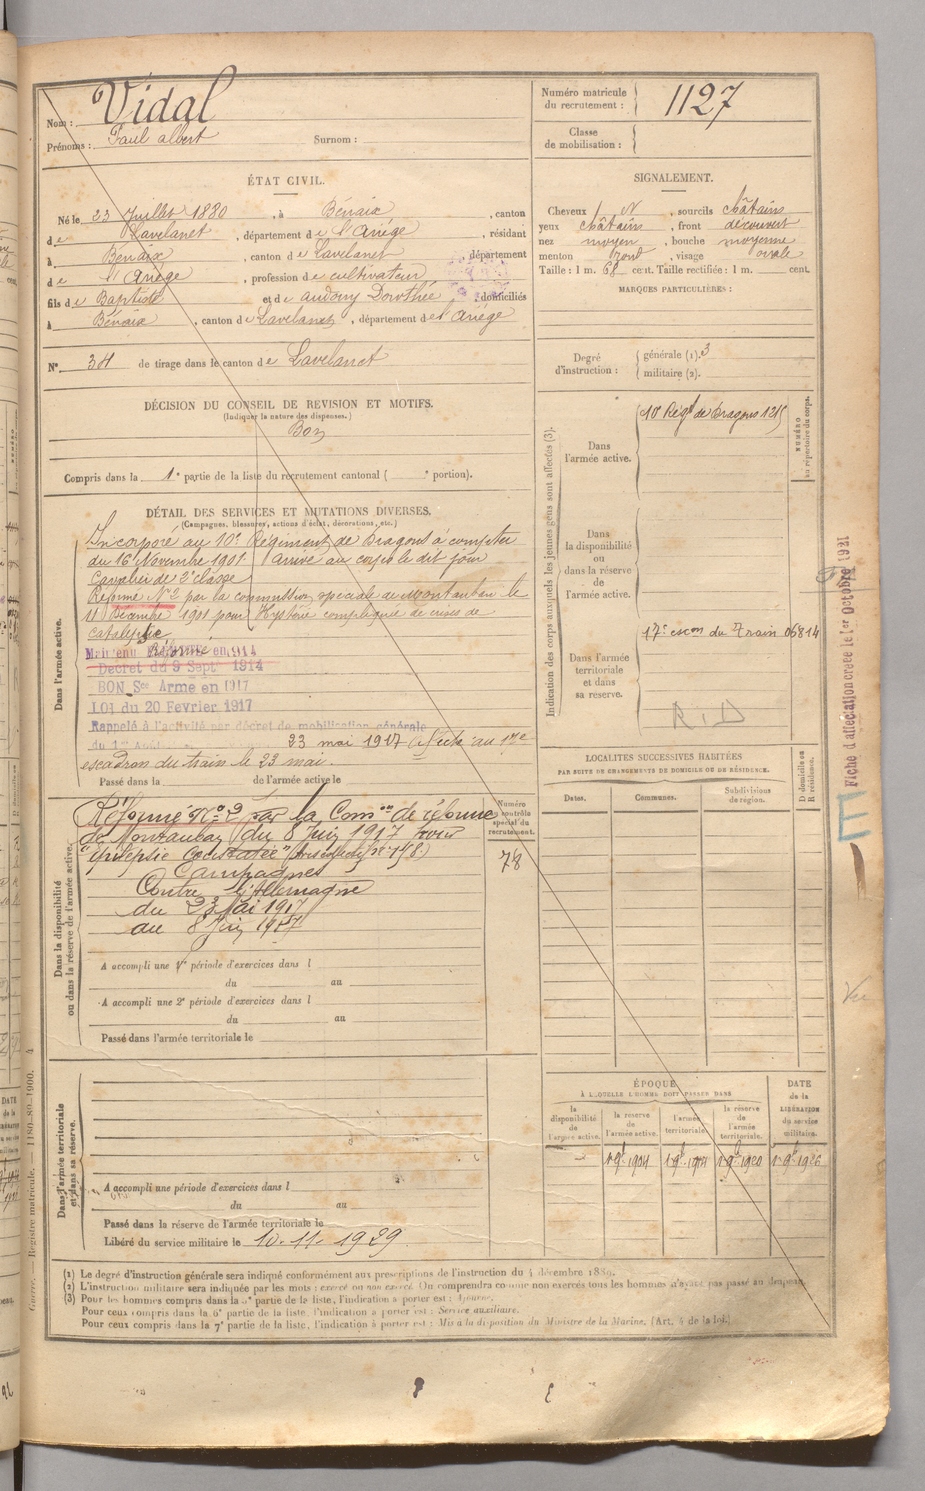 Nom : Vidal
Prénoms : Paul albert Surnom :
Numéro matricule
du recrutement : 1127
Classe
de mobilisation :
ÉTAT CIVIL.
Né le 23 Juillet 1880, à Bénaix, canton
de Lavelanet, département de l'Ariège, résidant
à Bénaix, canton de Lavelanet, département
de l'Ariège, profession de cultivateur
fils de Baptiste et de audouy Dorothée, domiciliés
à Bénaix, canton de Lavelanet, département de l'Ariège
N° 34 de tirage dans le canton de Lavelanet
SIGNALEMENT.
Cheveux N, sourcils châtains
yeux châtains, front découvert
nez moyen, bouche moyenne
menton rond, visage ovale
Taille : 1 m. 68 cent. Taille rectifiée : 1 m. cent.
MARQUES PARTICULIÈRES :
Degré
d'instruction :
générale (1). 3
militaire (2).
DÉCISION DU CONSEIL DE REVISION ET MOTIFS.
(Indiquer la nature des dispenses.)
Bon
Compris dans la 1e partie de la liste du recrutement cantonal ( e portion).
DÉTAIL DES SERVICES ET MUTATIONS DIVERSES.
(Campagnes, blessures, actions d'éclat, décorations, etc.)
Dans l'armée active.
Incorporé au 10e Régiment de Dragons à compter
du 16 Novembre 1901 Arrivé au corps le dit jour
Cavalier de 2e classe
Réformé N°2 par la commission spéciale de Montauban le
11 Décembre 1901 pour Hystérie compliquée de crises de
catalepsie
Maintenu Réformé en 1914
Décret du 9 Sept 1914
BON Sce Armé en 1917
Loi du 20 Fevrier 1917
Rappelé à l'activité par décret de mobilisation générale
du 1er Août 23 mai 1917 affecté au 17e
escadron du train le 23 mai.
Passé dans la de l'armée active le
Indication des corps auxquels les jeunes gens sont affectés (3).
NUMÉRO
au répertoire du corps.
Dans
l'armée active.
10e Régt de Dragons 1215
Dans
la disponibilité
ou
dans la réserve
de
l'armée active.
Dans l'armée
territoriale
et dans
sa réserve.
17e escon du Train 06814
R.D
Fiche d'affectation créée le 1er Octobre 1921
Dans la disponibilité
ou dans la réserve de l'armée active.
Numéro
au contrôle
spécial du
recrutement.
78
Réformé N° 2 par la Comon de réforme
de Montauban du 8 Juin 1917 pour
"épilepsie constatée"
Campagnes
Contre l'Allemagne
du 23 Mai 1917
au 8 Juin 1917
A accompli une 1re période d'exercices dans l
du au
A accompli une 2e période d'exercices dans l
du au
Passé dans l'armée territoriale le
LOCALITÉS SUCCESSIVES HABITÉES
PAR SUITE DE CHANGEMENTS DE DOMICILE OU DE RÉSIDENCE.
Dates. Communes. Subdivisions
de région.
D domicile ou
R résidence.
Vu
Dans l'armée territoriale
et dans sa réserve.
A accompli une période d'exercices dans l
du au
Passé dans la réserve de l'armée territoriale le
Libéré du service militaire le 10.11.1929
ÉPOQUE
À LAQUELLE L'HOMME DOIT PASSER DANS
DATE
de la
LIBÉRATION
du service
militaire.
la
disponibilité
de
l'armée active.
la réserve
de
l'armée active.
l'armée
territoriale.
la réserve
de
l'armée
territoriale.
1 9bre 1904 1 9bre 1914 1 9bre 1920 1 9bre 1926
(1) Le degré d'instruction générale sera indiqué conformément aux prescriptions de l'instruction du 4 décembre 1889.
(2) L'instruction militaire sera indiquée par les mots : exercé ou non exercé. On comprendra comme non exercés tous les hommes n'ayant pas passé au drapeau.
(3) Pour les hommes compris dans la 5e partie de la liste, l'indication à porter est : Ajourné.
Pour ceux compris dans la 6e partie de la liste, l'indication à porter est : Service auxiliaire.
Pour ceux compris dans la 7e partie de la liste, l'indication à porter est : Mis à la disposition du Ministre de la Marine. (Art. 4 de la loi.)
Guerre. — Registre matricule. — 1180-80-1900. 4